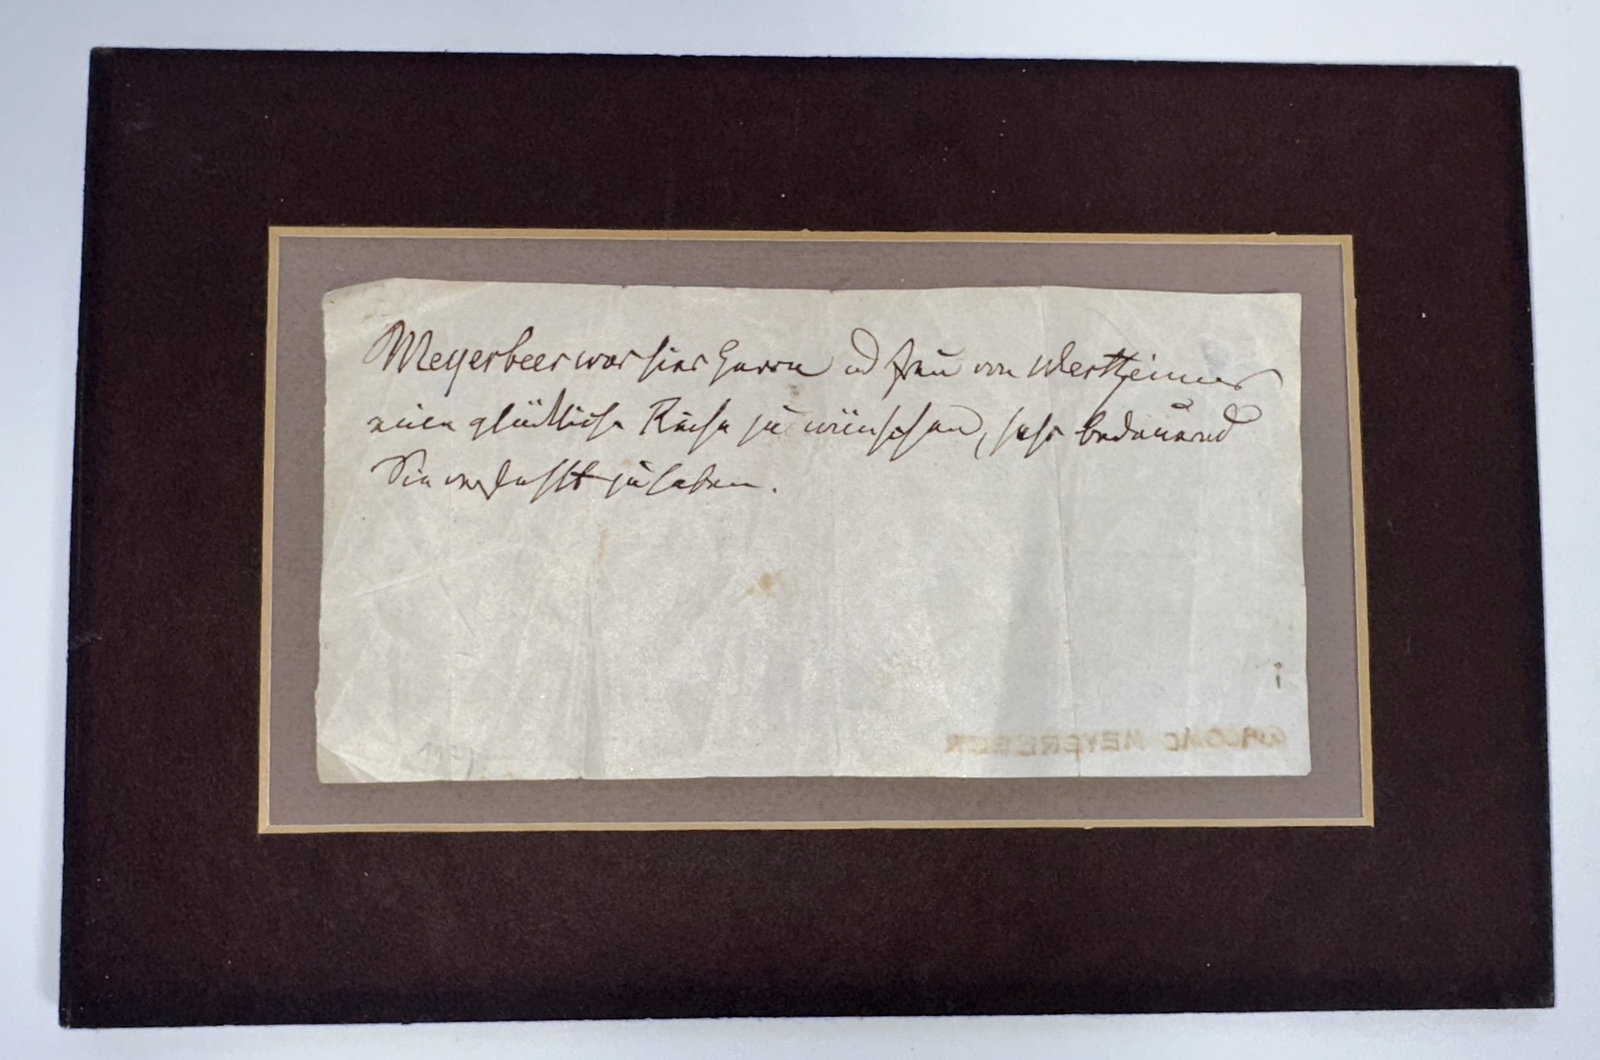 Meyerbeer war hier Herrn und Frau von Wertheimer
eine glückliche Reise zu wünschen, sehr bedauernd
Sie verfehlt zu haben.
GIACOMO MEYERBEER